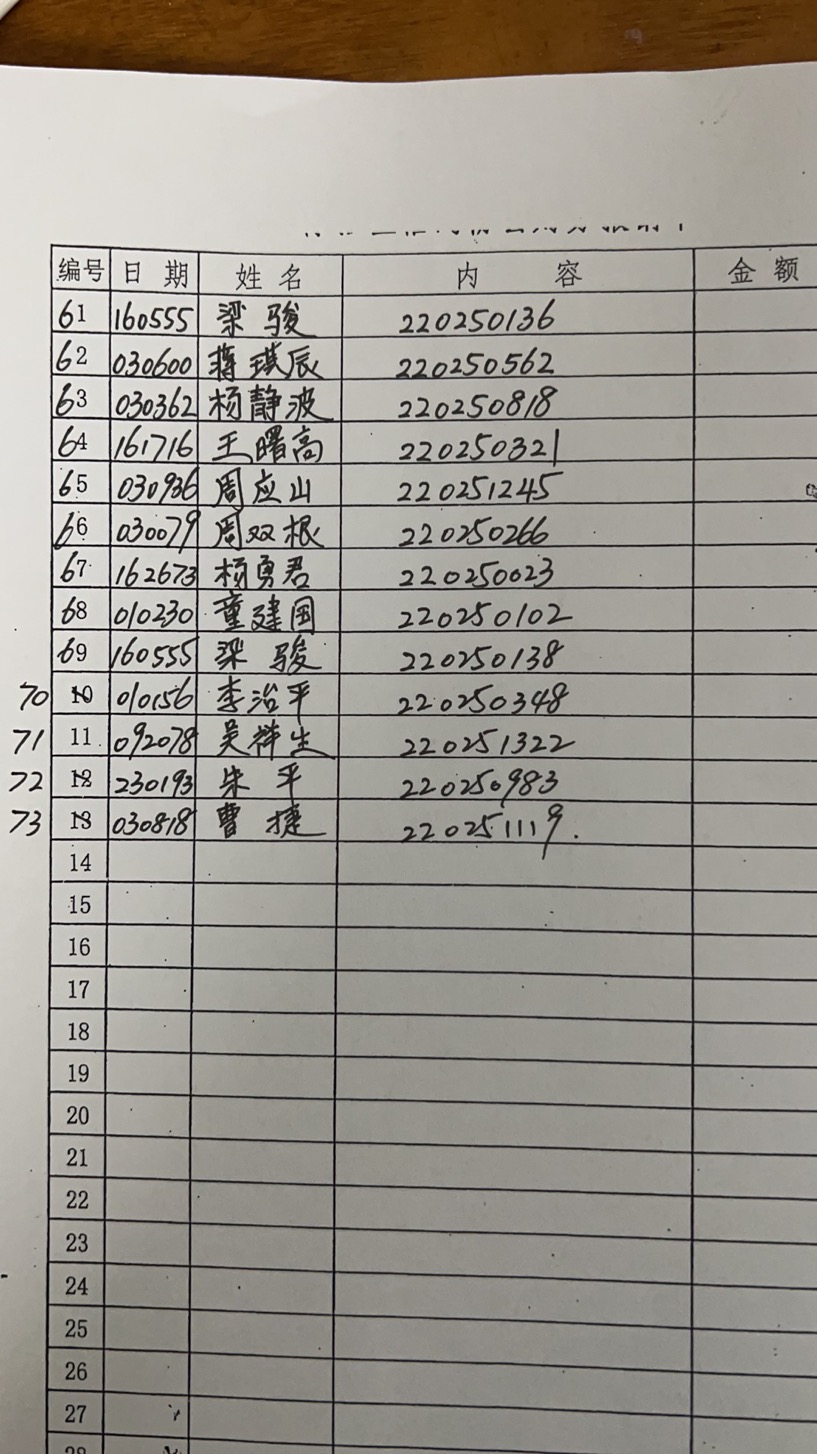 编号 日 期 姓 名 内 容 金 额
61 160555 梁骏 220250136
62 030600 蒋琪辰 220250562
63 030362 杨静波 220250818
64 161716 王曙高 220250321
65 030936 周应山 220251245
66 030079 周双根 220250266
67 162673 杨勇君 220250023
68 010230 童建国 220250102
69 160555 梁骏 220250138
70 10 010156 李治平 220250348
71 11 092078 吴祥生 220251322
72 12 230193 朱平 220250983
73 13 030818 曹捷 220251119.
14
15
16
17
18
19
20
21
22
23
24
25
26
27
28